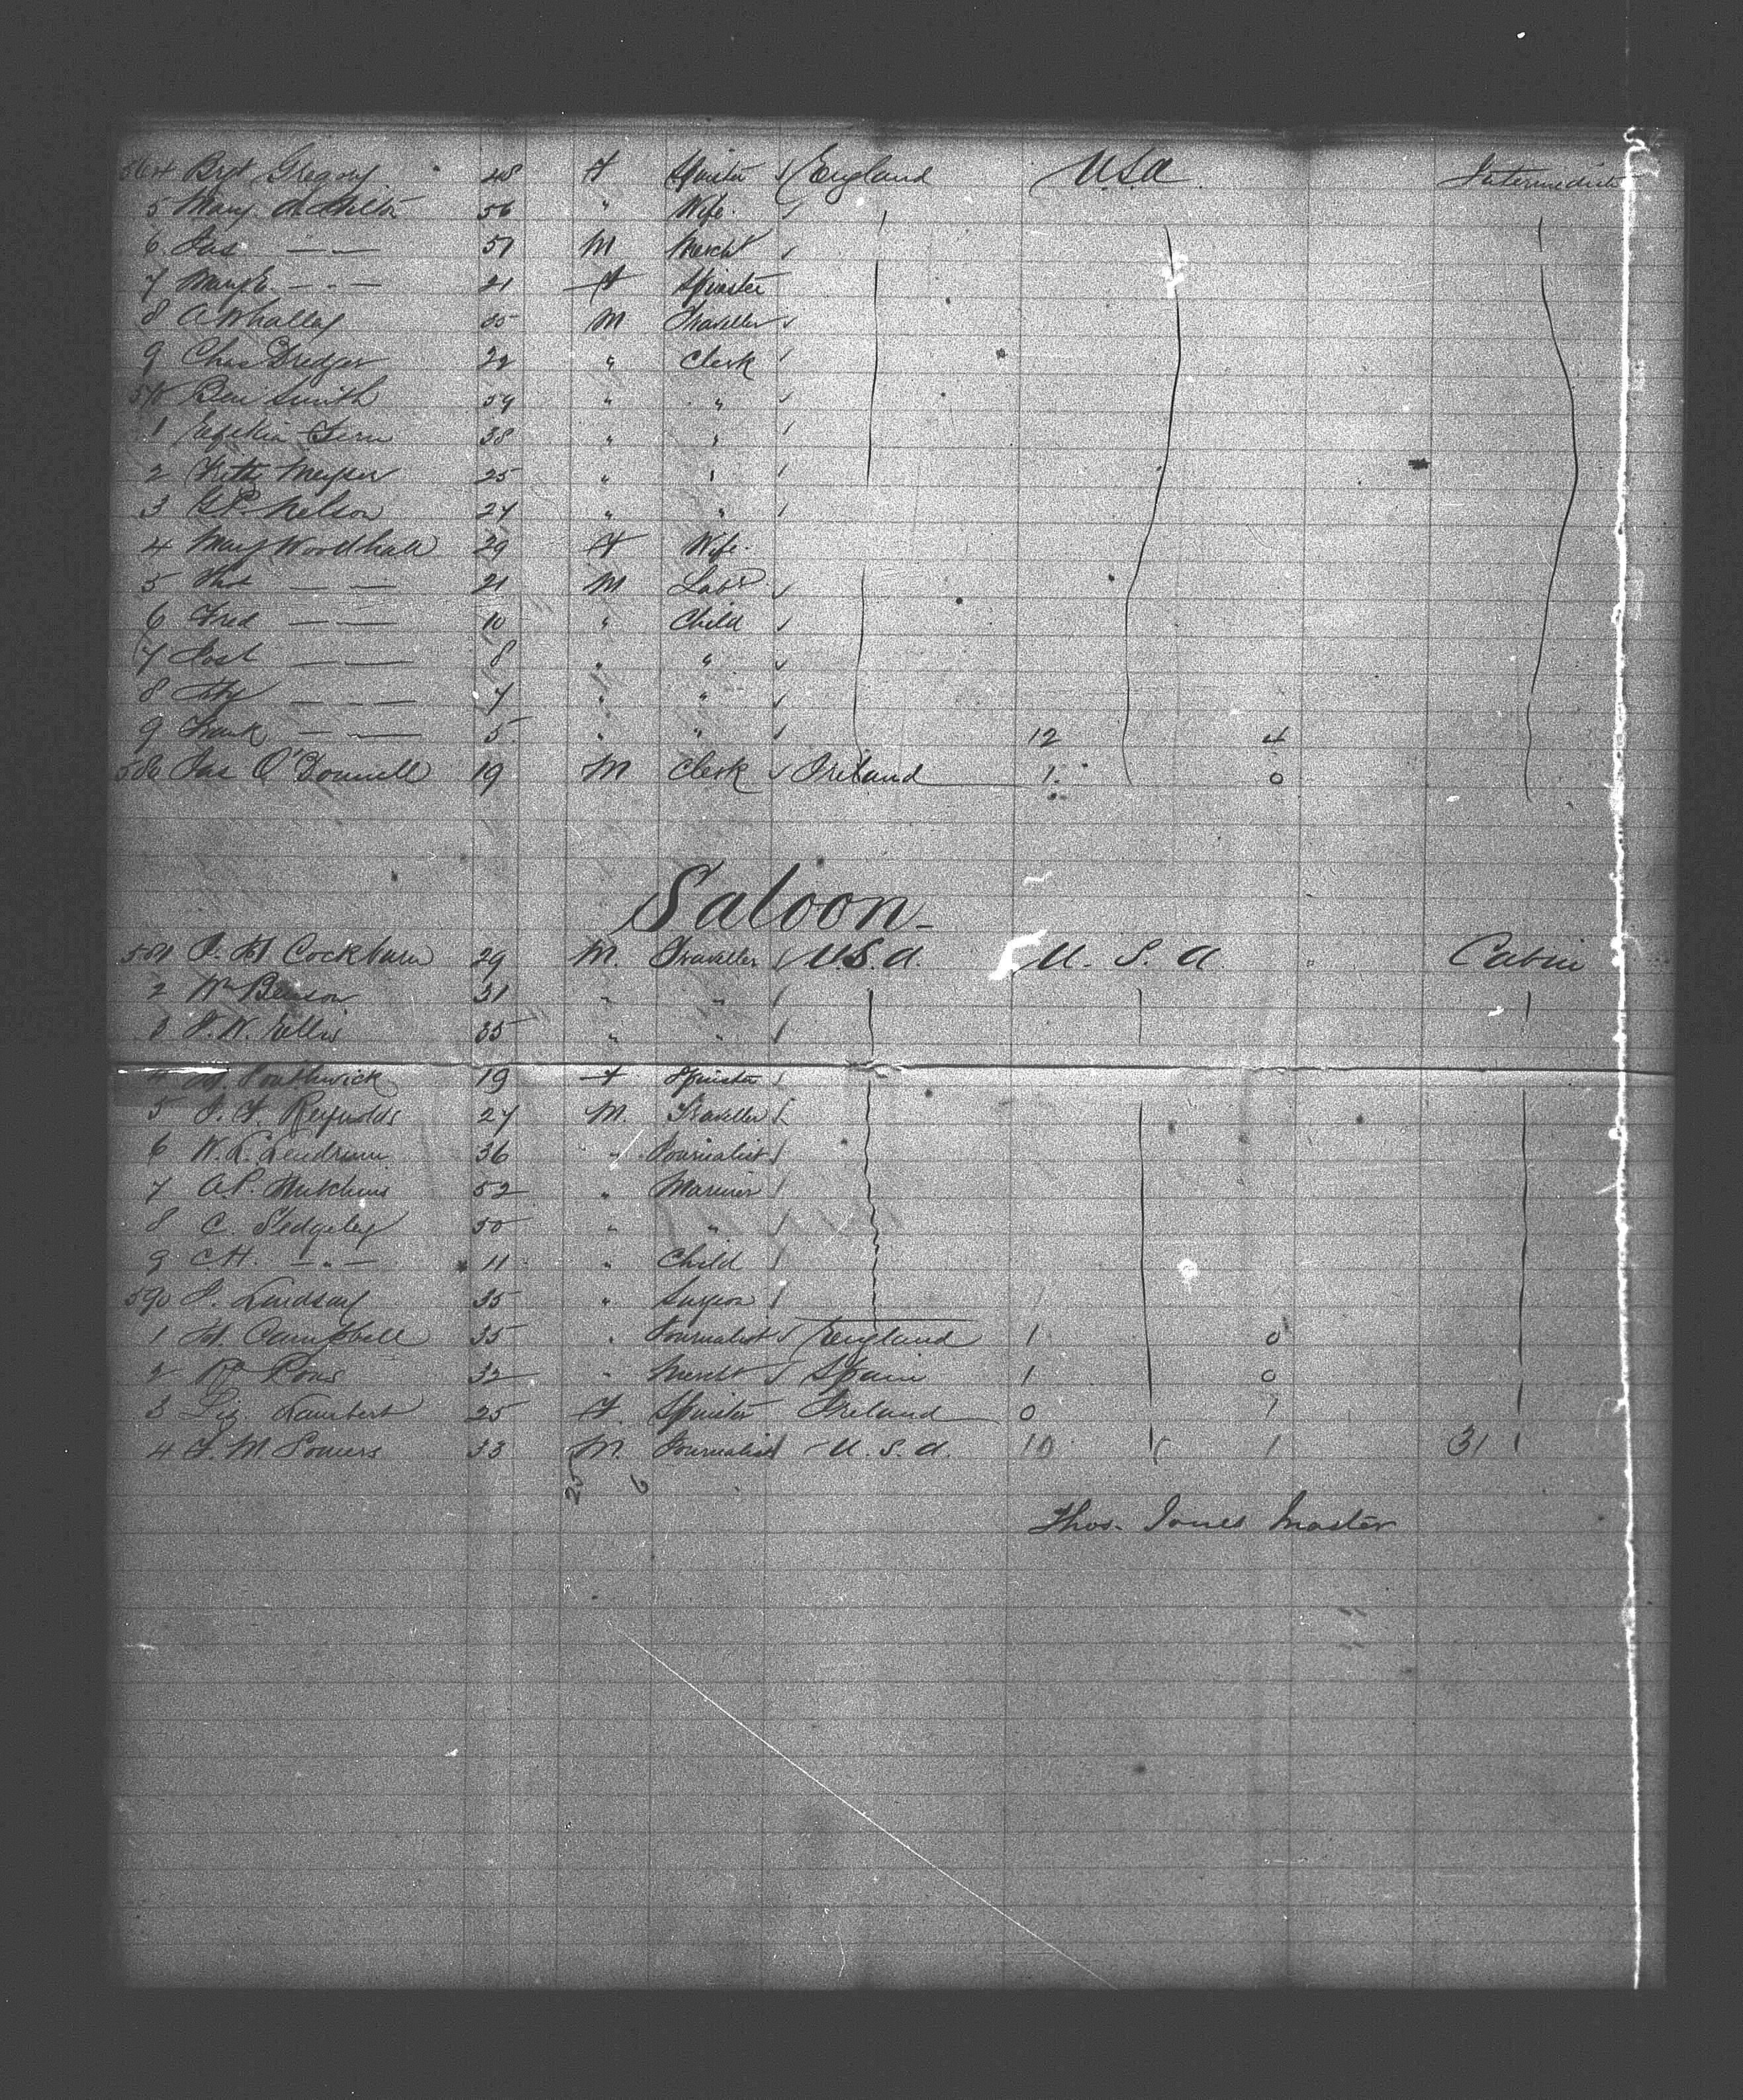 564 Brgt Gregory 48 F Spinster England USA Intermediate
5 Mary 56 " Wife
6 Jas — — 57 M Mercht
7 Mary E. — " — 21 F Spinster
8 A Whalley 35 M Traveller
9 Chas Dredger 22 " Clerk
570 Ben Smith 59 " "
1 38 " "
2 Meyser 25 " "
3 G.P. Nelson 27 " "
4 Mary Woodhall 29 F Wife
5 Thos — — 21 M Labr
6 Fred — — 10 " Child
7 Josh — — 8 " "
8 — — 7 " "
9 Frank — — 5 " " 12 4
580 Jas O'Donnell 19 M Clerk Ireland 1 0
Saloon
581 Cockburn 29 M. Traveller U.S.A. U. S. A. " Cabin
2 Wm Benson 31 " "
3 J. W. Ellis 35 " "
4 M. Southwick 19 F Spinster
5 J. F. Reynolds 27 M. Traveller
6 W. L. Lendrum 36 " Journalist
7 A.P. Hutchins 52 " Mariner
8 C. Sledgeley 50 " "
9 C H. — " — 11 " Child
590 J. Lindsay 35 " Surgeon
1 Campbell 35 " Journalist England 1 0
2 Pons 32 " Mercht Spain 1 0
3 Liz Lambert 25 F. Spinster Ireland 0 1
4 F. M. Somers 33 M. Journalist U. S. A. 10 1 31
25 6
Thos. Jones Master